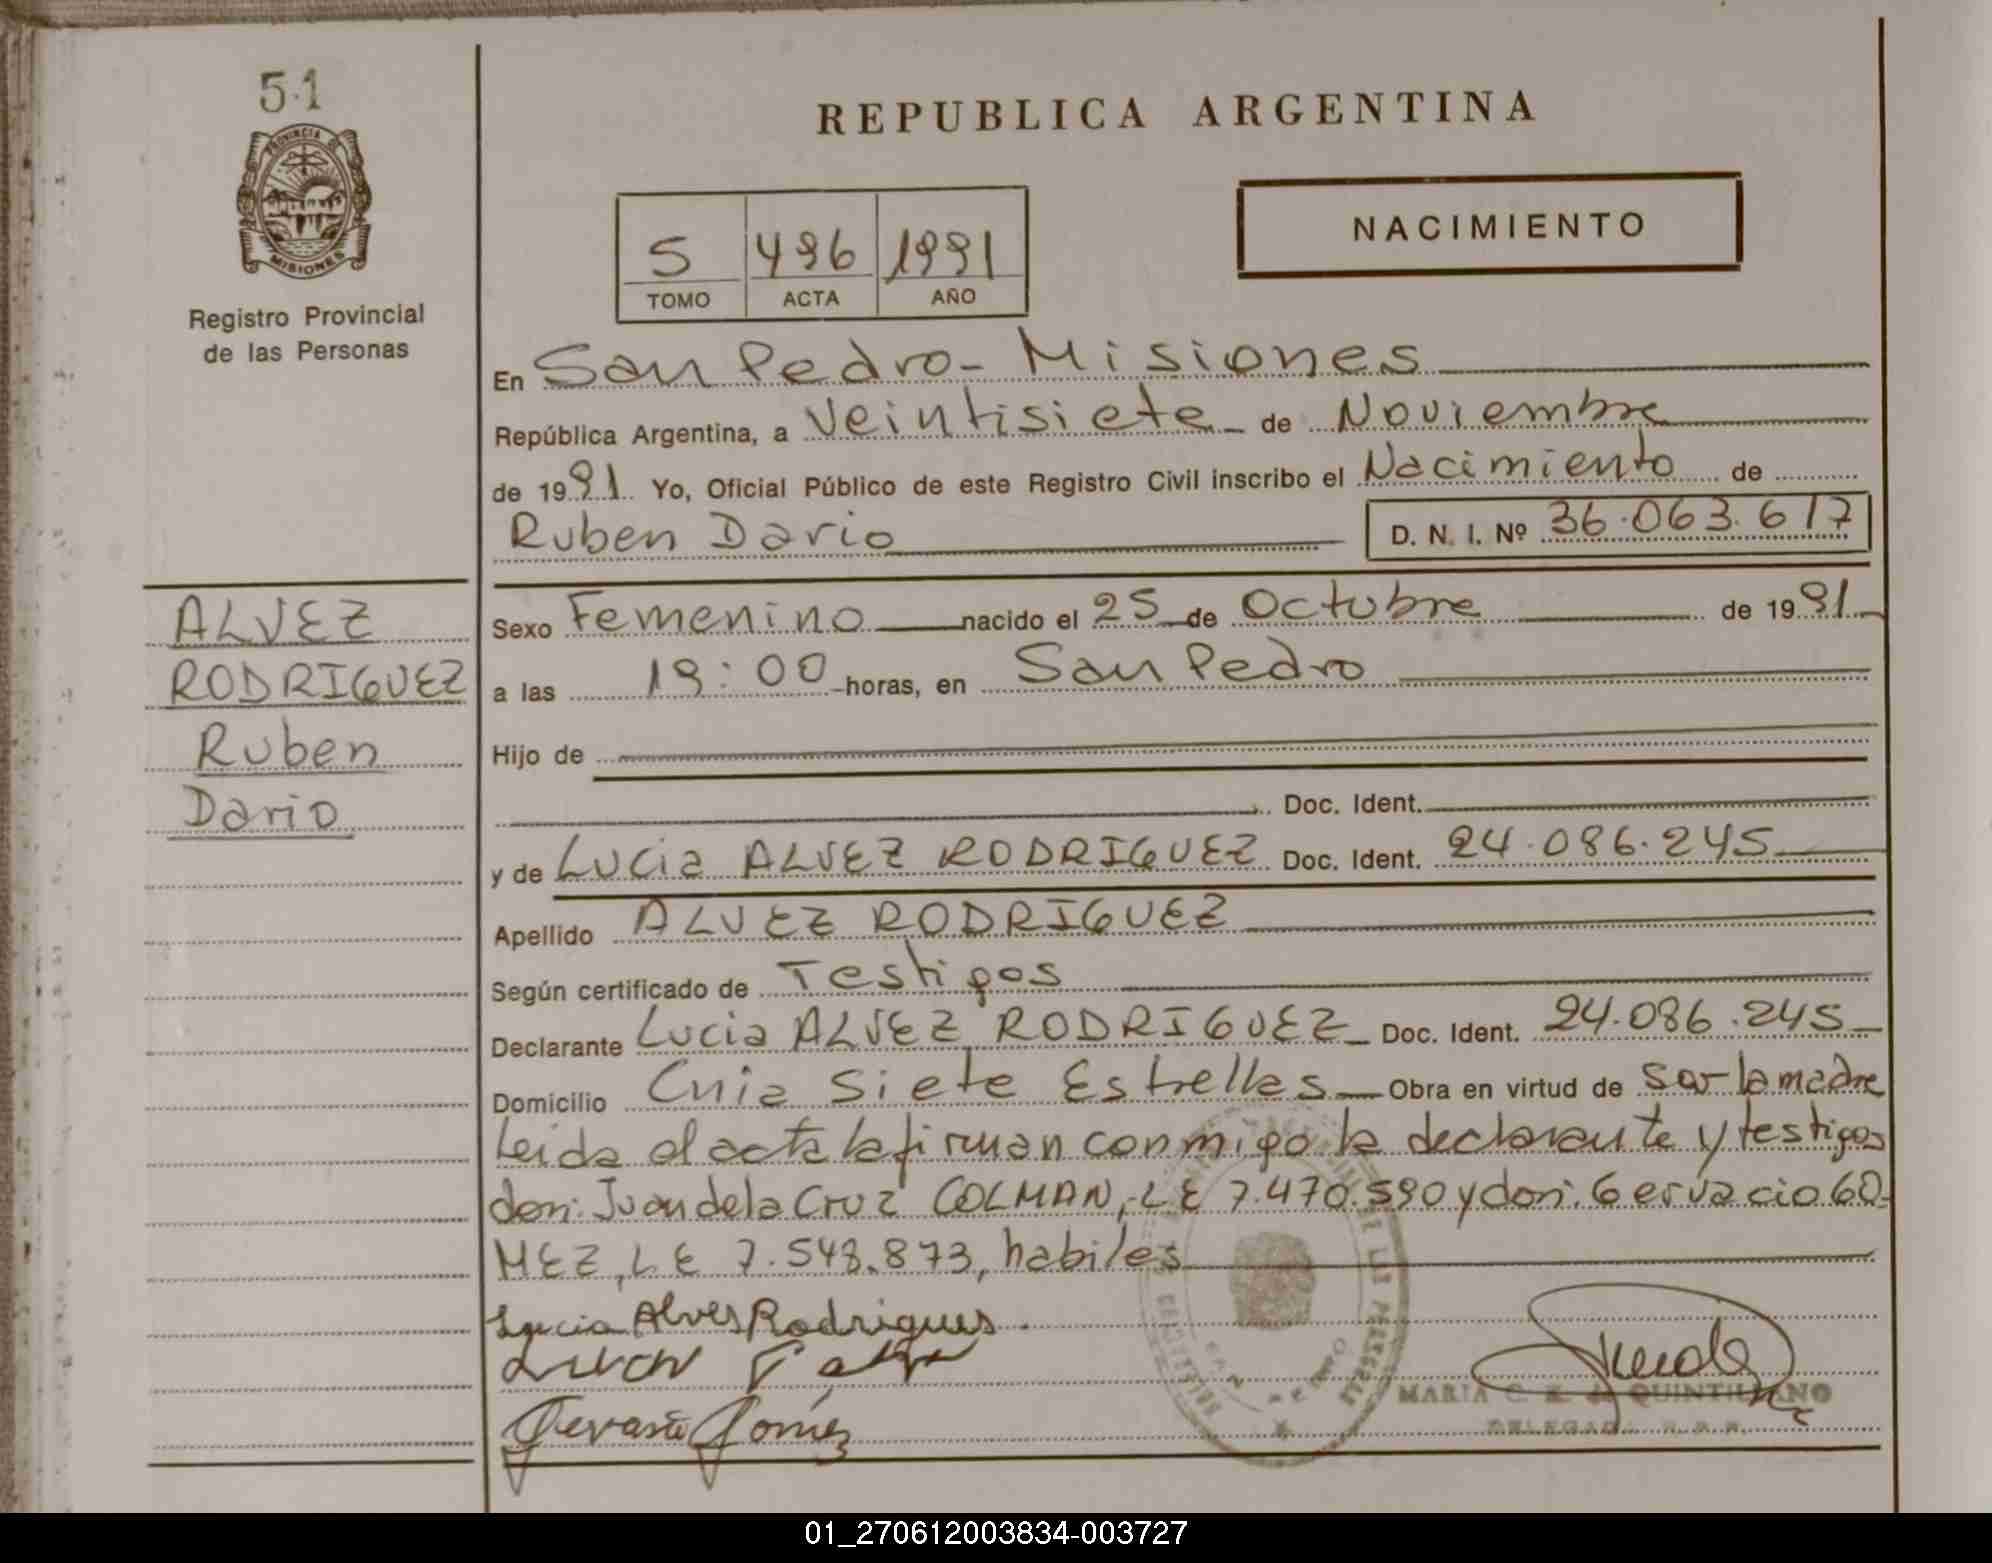 51
PROVINCIA DE
MISIONES
Registro Provincial
de las Personas
REPUBLICA ARGENTINA
NACIMIENTO
5 496 1991
TOMO ACTA AÑO
En San Pedro - Misiones
República Argentina, a Veintisiete de Noviembre
de 1991 Yo, Oficial Público de este Registro Civil inscribo el Nacimiento de
Ruben Dario D. N. I. Nº 36.063.617
ALVEZ
RODRIGUEZ
Ruben
Dario
Sexo Femenino nacido el 25 de Octubre de 1991
a las 19:00 horas, en San Pedro
Hijo de
Doc. Ident.
y de Lucia ALVEZ RODRIGUEZ Doc. Ident. 24.086.245
Apellido ALVEZ RODRIGUEZ
Según certificado de Testigos
Declarante Lucia ALVEZ RODRIGUEZ Doc. Ident. 24.086.245
Domicilio Cnia Siete Estrellas Obra en virtud de ser la madre
Leida el acta la firman conmigo la declarante y testigos
don: Juan de la Cruz COLMAN, L E 7.470.590 y don: Gervacio GO-
MEZ, L E 7.548.873, habiles
Lucia Alves Rodrigues.
Gervacio Gomez
MARIA C. de QUINTILIANO
DELEGADA R.P.P.
SAN PEDRO
01_270612003834-003727